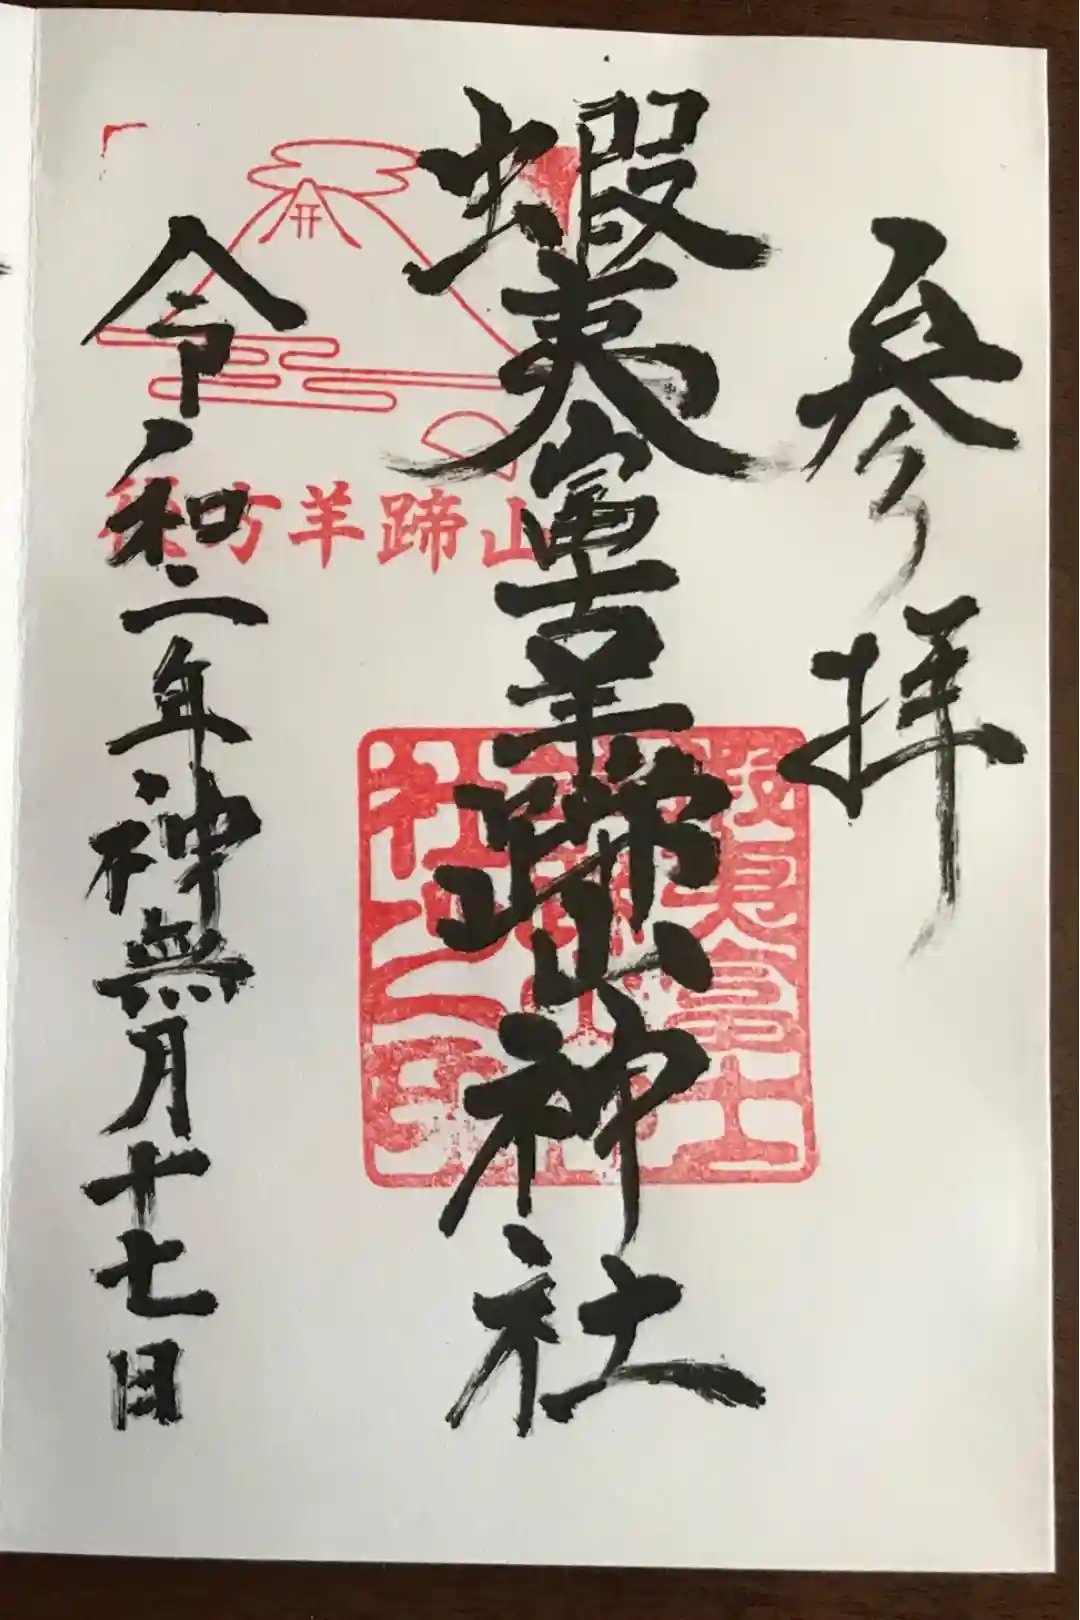 参拝
蝦夷富士羊蹄山神社
令和二年神無月十七日
後方羊蹄山
蝦夷富士
羊蹄山神
社之印